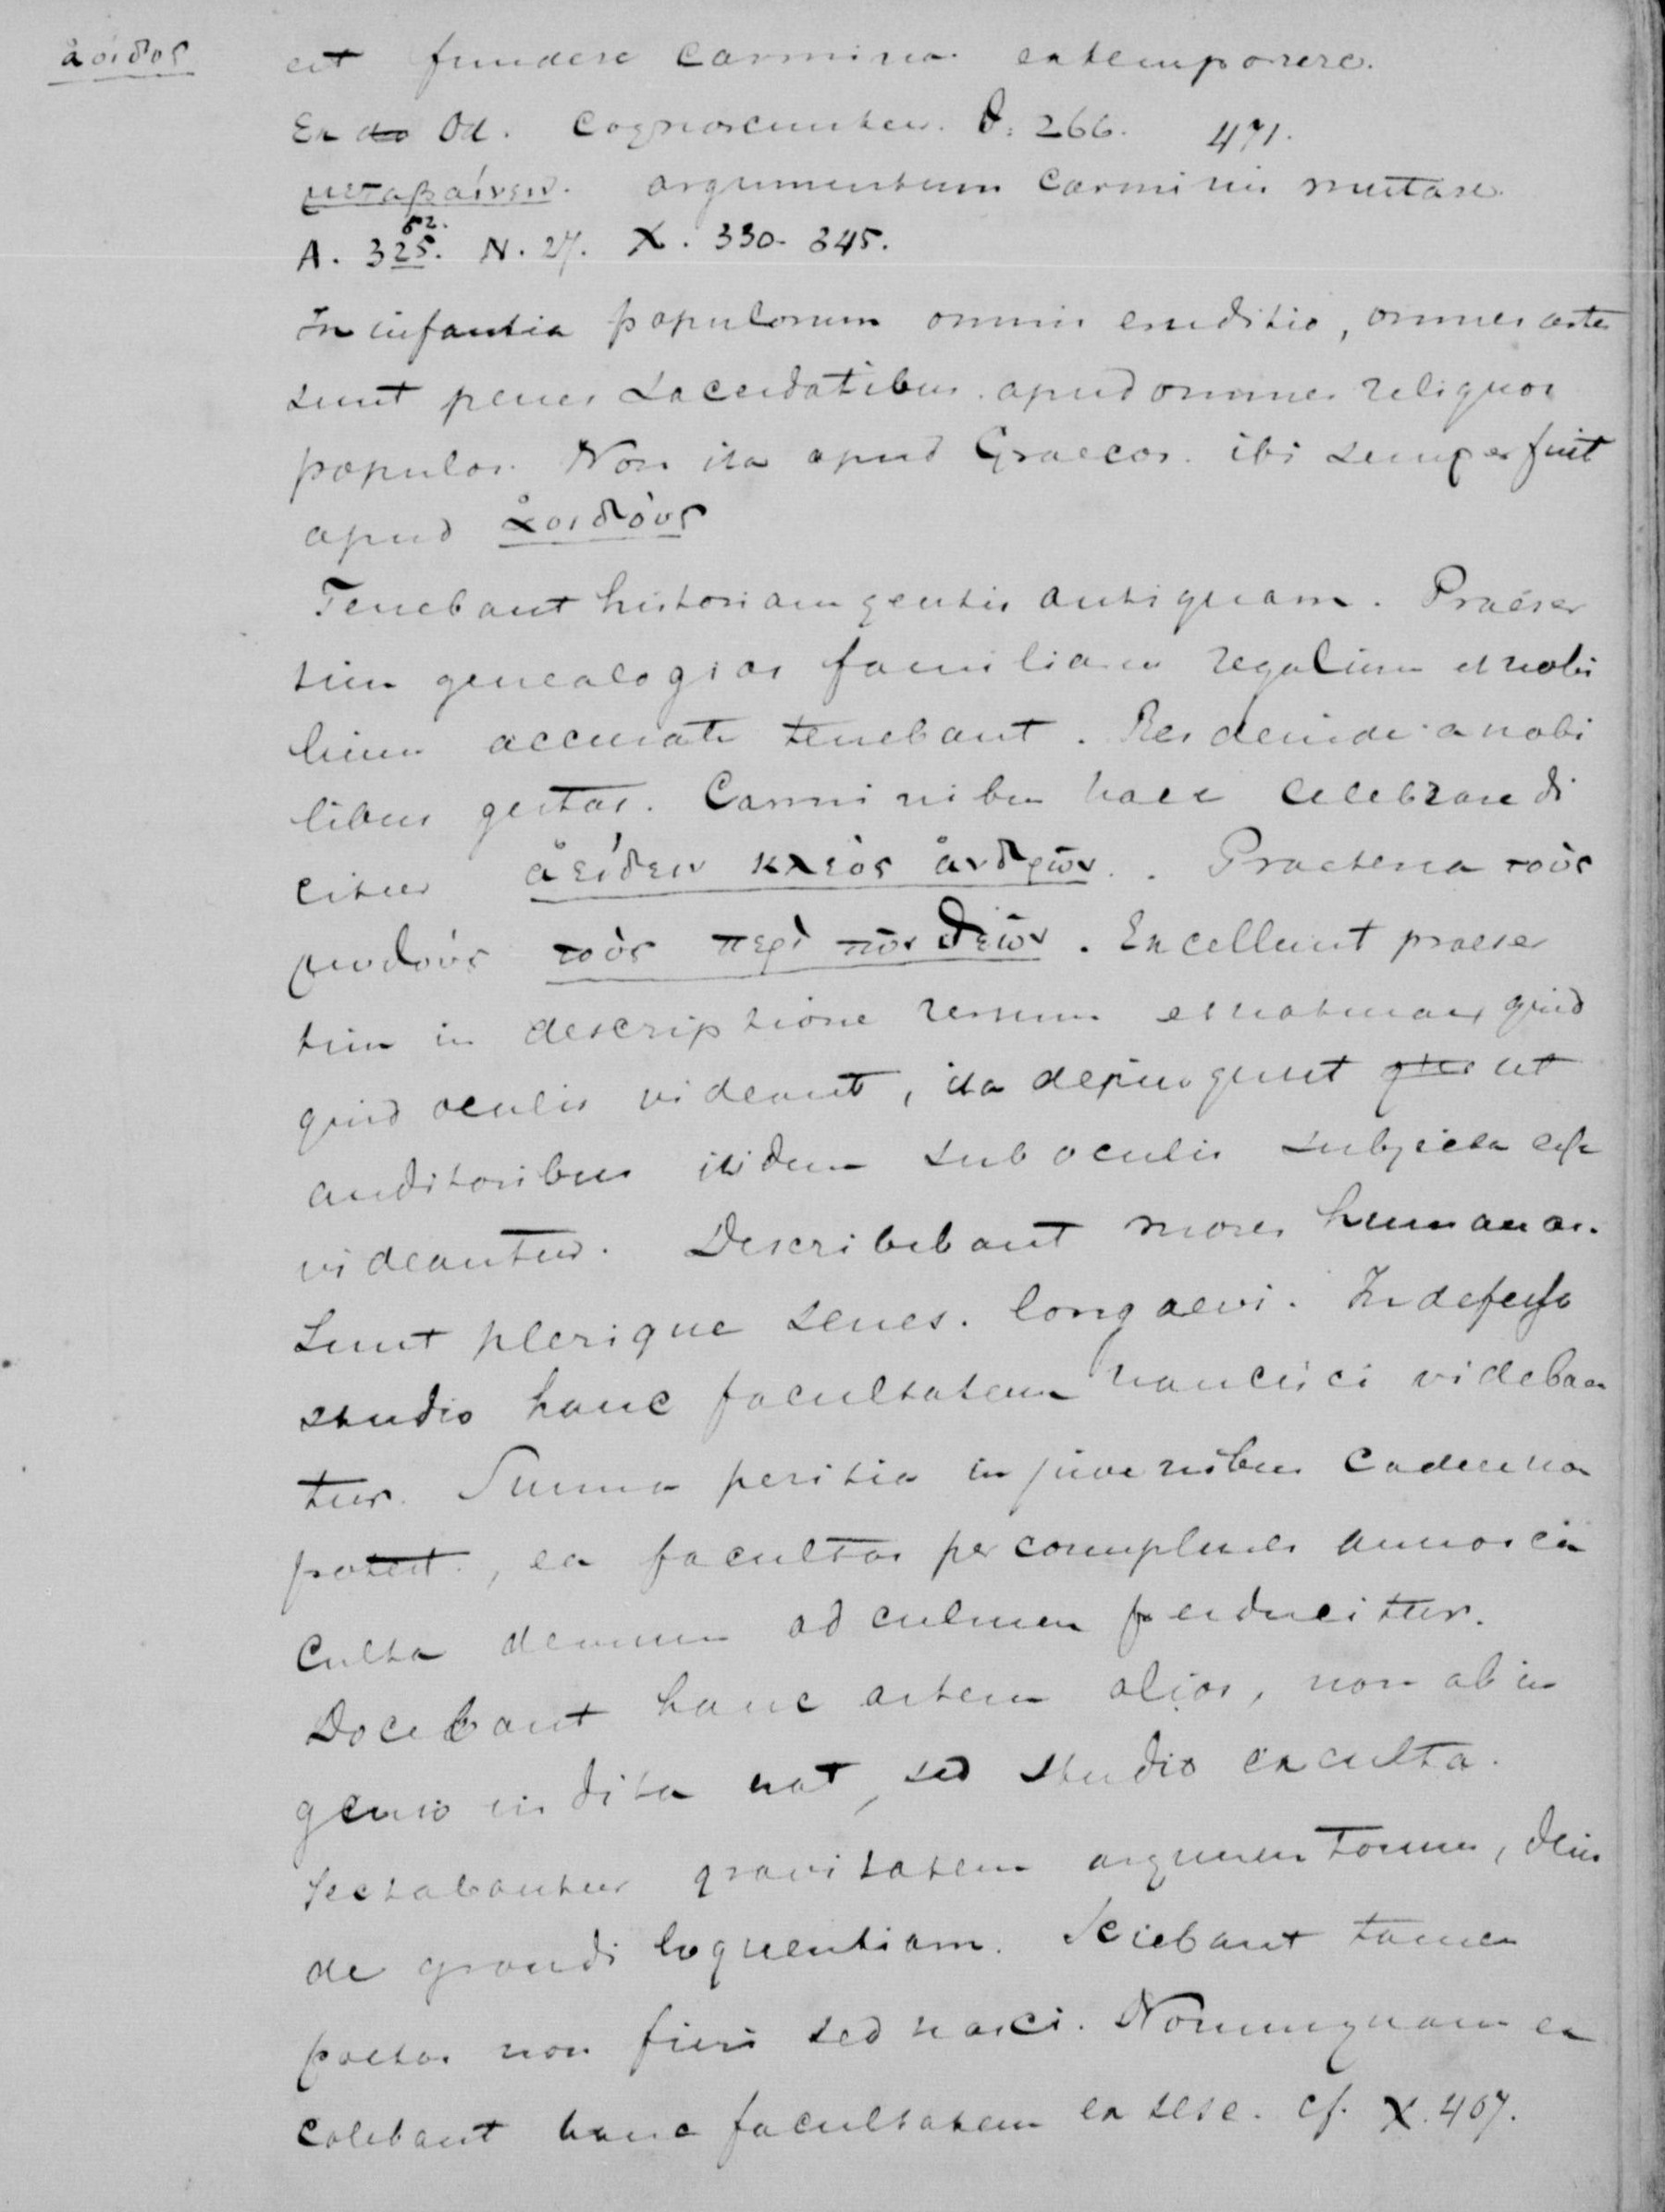 ἀοιδος
est fundere carmina extempore.
Ex Od. cognoscuntur. θ. 266. 471.
μεταβαίνειν. argumentum carminis mutare.
A. 325. 52. N. 27. X. 330-345.
In infantia populorum omnis eruditio, omnes artes
sunt penes sacerdotibus. apud omnes reliquos
populos. Non ita apud Graecos. ibi semper fuit
apud ἀοιδούς
Tenebant historiam gentis antiquam. Praeser
tim genealogias familiarum regalium et nobi
lium accurate tenebant. Res deinde a nobi
libus gestas. Carminibus haec celebrare di
citur ἀείδειν κλέος ἀνδρῶν. Praeterea τοὺς
μυθούς τοὺς περὶ τῶν θεῶν. Excellunt praeser
tim in descriptione rerum et naturae, quid
quid oculis videant, ita depingunt ut
auditoribus itidem sub oculis subjecta esse
videantur. Describebant mores humanos.
Sunt plerique senes. longaevi. Indefesso
studio hanc facultatem nancisci videban
tur. Summa peritia in juvenibus cadere non
potest, ea facultas per complures annos ex
culta demum ad culmen perducitur.
Docebant hanc artem alios, non ab in
genio indita nat, sed studio exculta.
Sectabantur gravitatem argumentorum, dein
de grandiloquentiam. Sciebant tamen
poetas non fieri sed nasci. Nonnunquam ex
colebant hanc facultatem ex sese. cf. X. 407.